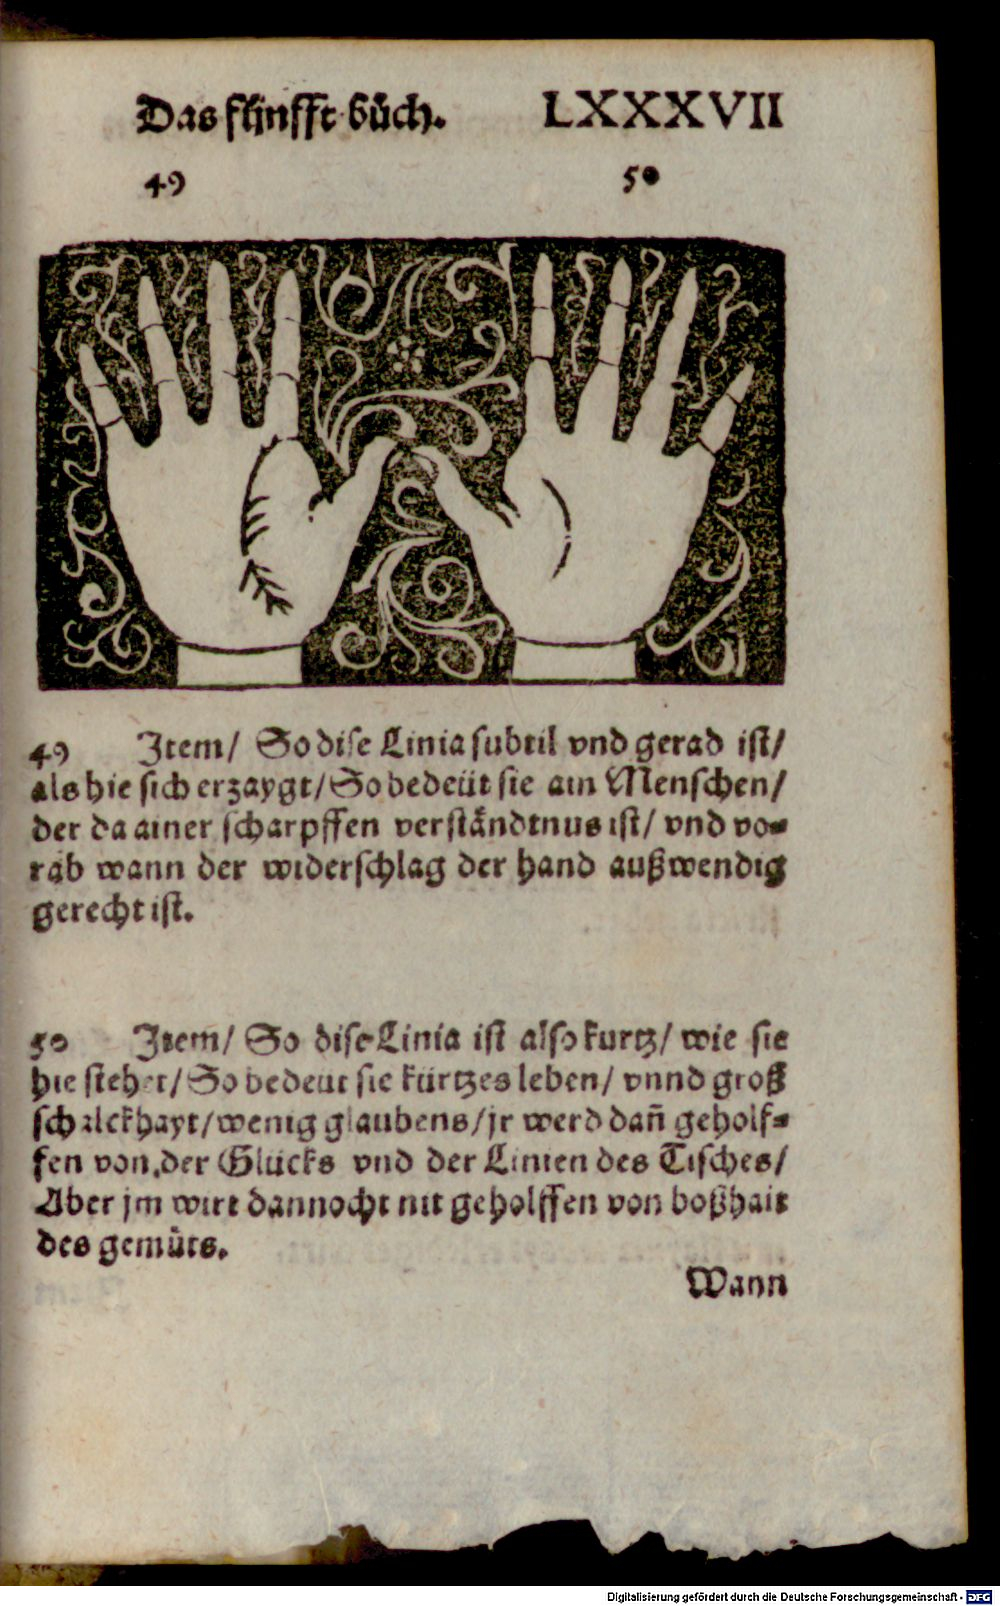 Das fünfft bůch. LXXXVII
49 50
49 Item/ So dise Linia subtil vnd gerad ist/
als hie sich erzaygt/ So bedeüt sie ain Menschen/
der da ainer scharpffen verständtnus ist/ vnd vo-
rab wann der widerschlag der hand außwendig
gerecht ist.
50 Item/ So dise Linia ist also kurtz/ wie sie
hie stehet/ So bedeut sie kürtzes leben/ vnnd groß
schalckhayt/ wenig glaubens/ jr werd dañ geholf-
fen von der Glücks vnd der Linien des Tisches/
Aber jm wirt dannocht nit geholffen von boßhait
des gemüts.
Wann
Digitalisierung gefördert durch die Deutsche Forschungsgemeinschaft - DFG